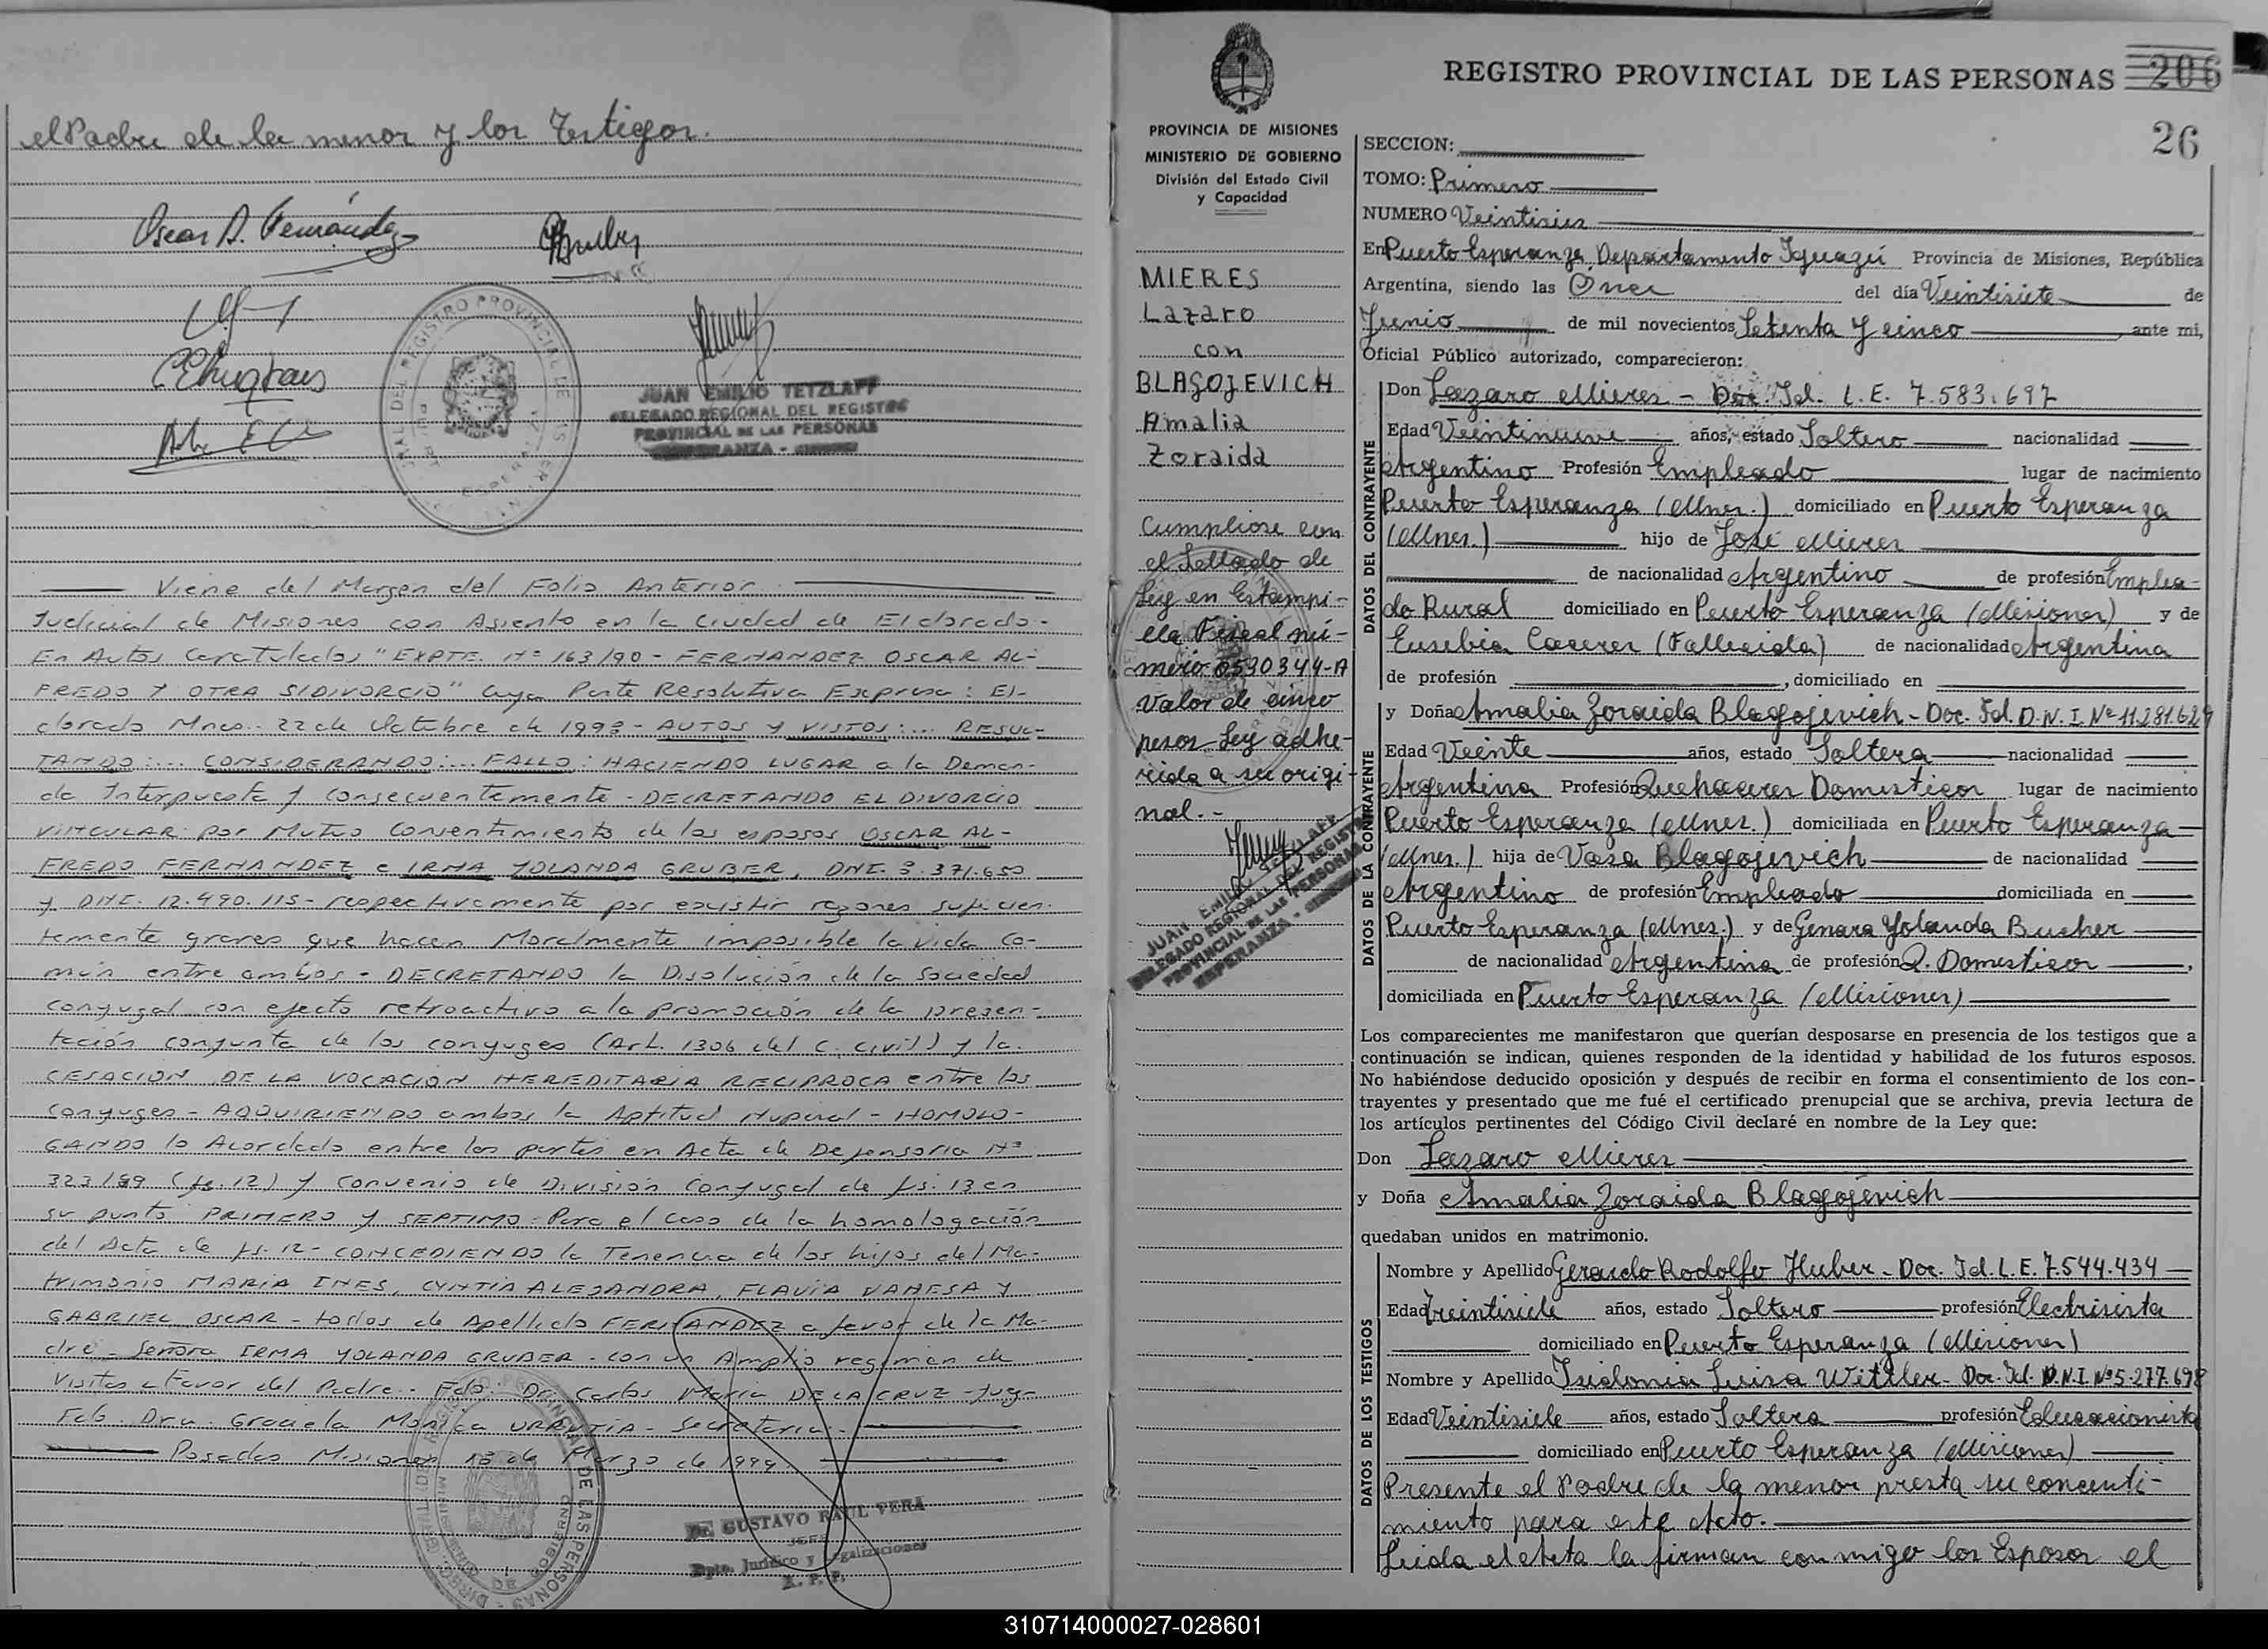 el Padre de la menor y los Testigos.
Oscar A. Fernández
JUAN EMILIO TETZLAFF
DELEGADO REGIONAL DEL REGISTRO
PROVINCIAL DE LAS PERSONAS
Viene del Margen del Folio Anterior
Judicial de Misiones con Asiento en la Ciudad de Eldorado-
En Autos Caratulados "EXPTE. Nº 163/90 - FERNANDEZ OSCAR AL-
FREDO Y OTRA S/DIVORCIO" Cuya Parte Resolutiva Expresa: El-
dorado Mnes. 22 de Octubre de 1993 - AUTOS Y VISTOS:... RESUL-
TANDO:... CONSIDERANDO:... FALLO: HACIENDO LUGAR a la Deman-
da Interpuesta y consecuentemente - DECRETANDO EL DIVORCIO
VINCULAR por Mutuo Consentimiento de los esposos OSCAR AL-
FREDO FERNANDEZ e IRMA YOLANDA GRUBER, DNI. 371.650
y DNI. 12.490.115 - respectivamente por existir razones suficien-
temente graves que hacen Moralmente imposible la vida Co-
mún entre ambos - DECRETANDO la Disolución de la Sociedad
conyugal con efecto retroactivo a la promoción de la presen-
tación conjunta de los conyuges (Art. 1306 del C. Civil) y la
CESACION DE LA VOCACION HEREDITARIA RECIPROCA entre los
Conyuges - ADQUIRIENDO ambos la Aptitud Nupcial - HOMOLO-
GANDO lo Acordado entre las partes en Acta de Defensoria Nº
323/89 (fs. 12) y Convenio de División Conyugal de fs. 13 en
su punto PRIMERO y SEPTIMO - Para el caso de la homologación
del Acta de fs. 12 - CONCEDIENDO la Tenencia de los hijos del Ma-
trimonio MARIA INES, CYNTIA ALEJANDRA, FLAVIA VANESA Y
GABRIEL OSCAR - todos de Apellido FERNANDEZ a favor de la Ma-
dre - Señora IRMA YOLANDA GRUBER - con un Amplio regimen de
Visitas a Favor del Padre - Fdo. Dr. Carlos Maria DE LA CRUZ - Juez
Fdo. Dra. Graciela Monica URRUTIA - Secretaria.
Posadas Misiones 13 de Marzo de 1994
Dr. GUSTAVO RAUL VERA
JEFE
Dpto. Jurídico y Legalizaciones
R. P. P.
REGISTRO PROVINCIAL DE LAS PERSONAS 206
26
PROVINCIA DE MISIONES
MINISTERIO DE GOBIERNO
División del Estado Civil
y Capacidad
MIERES
Lazaro
con
BLAGOJEVICH
Amalia
Zoraida
Cumpliose con
el Sellado de
Ley en Estampi-
lla Fiscal nú-
mero 0530344-A
Valor de cinco
pesos Ley adhe-
rida a su origi-
nal.-
JUAN EMILIO TETZLAFF
DELEGADO REGIONAL DEL REGISTRO
PROVINCIAL DE LAS PERSONAS
ESPERANZA - MISIONES
SECCION:
TOMO: Primero
NUMERO Veintiseis
En Puerto Esperanza, Departamento Iguazú Provincia de Misiones, República
Argentina, siendo las Once del día Veintisiete de
Junio de mil novecientos Setenta y cinco, ante mi,
Oficial Público autorizado, comparecieron:
DATOS DEL CONTRAYENTE
Don Lazaro Mieres - Doc. Id. L.E. 7.583.697
Edad Veintinueve años, estado Soltero nacionalidad
Argentino Profesión Empleado lugar de nacimiento
Puerto Esperanza (Mnes.) domiciliado en Puerto Esperanza
(Mnes.) hijo de José Mieres
de nacionalidad Argentino de profesión Emplea-
do Rural domiciliado en Puerto Esperanza (Misiones) y de
Eusebia Caceres (Fallecida) de nacionalidad Argentina
de profesión , domiciliado en
DATOS DE LA CONTRAYENTE
y Doña Amalia Zoraida Blagojevich - Doc. Id. D.N.I. Nº 11.281.629
Edad Veinte años, estado Soltera nacionalidad
Argentina Profesión Quehaceres Domesticos lugar de nacimiento
Puerto Esperanza (Mnes.) domiciliada en Puerto Esperanza
(Mnes.) hija de Vasa Blagojevich de nacionalidad
Argentino de profesión Empleado domiciliada en
Puerto Esperanza (Mnes.) y de Genara Yolanda Bucher
de nacionalidad Argentina de profesión Q. Domesticos,
domiciliada en Puerto Esperanza (Misiones)
Los comparecientes me manifestaron que querían desposarse en presencia de los testigos que a
continuación se indican, quienes responden de la identidad y habilidad de los futuros esposos.
No habiéndose deducido oposición y después de recibir en forma el consentimiento de los con-
trayentes y presentado que me fué el certificado prenupcial que se archiva, previa lectura de
los artículos pertinentes del Código Civil declaré en nombre de la Ley que:
Don Lazaro Mieres
y Doña Amalia Zoraida Blagojevich
quedaban unidos en matrimonio.
DATOS DE LOS TESTIGOS
Nombre y Apellido Gerardo Rodolfo Huber - Doc. Id. L.E. 7.544.434
Edad Treintisiete años, estado Soltero profesión Electrisista
domiciliado en Puerto Esperanza (Misiones)
Nombre y Apellido Isidonia Luisa Wittler - Doc. Id. D.N.I. Nº 5.277.698
Edad Veintisiete años, estado Soltera profesión Educacionista
domiciliado en Puerto Esperanza (Misiones)
Presente el Padre de la menor presta su concenti-
miento para este Acto.
Leida el Acta la firman conmigo los Esposos el
310714000027-028601